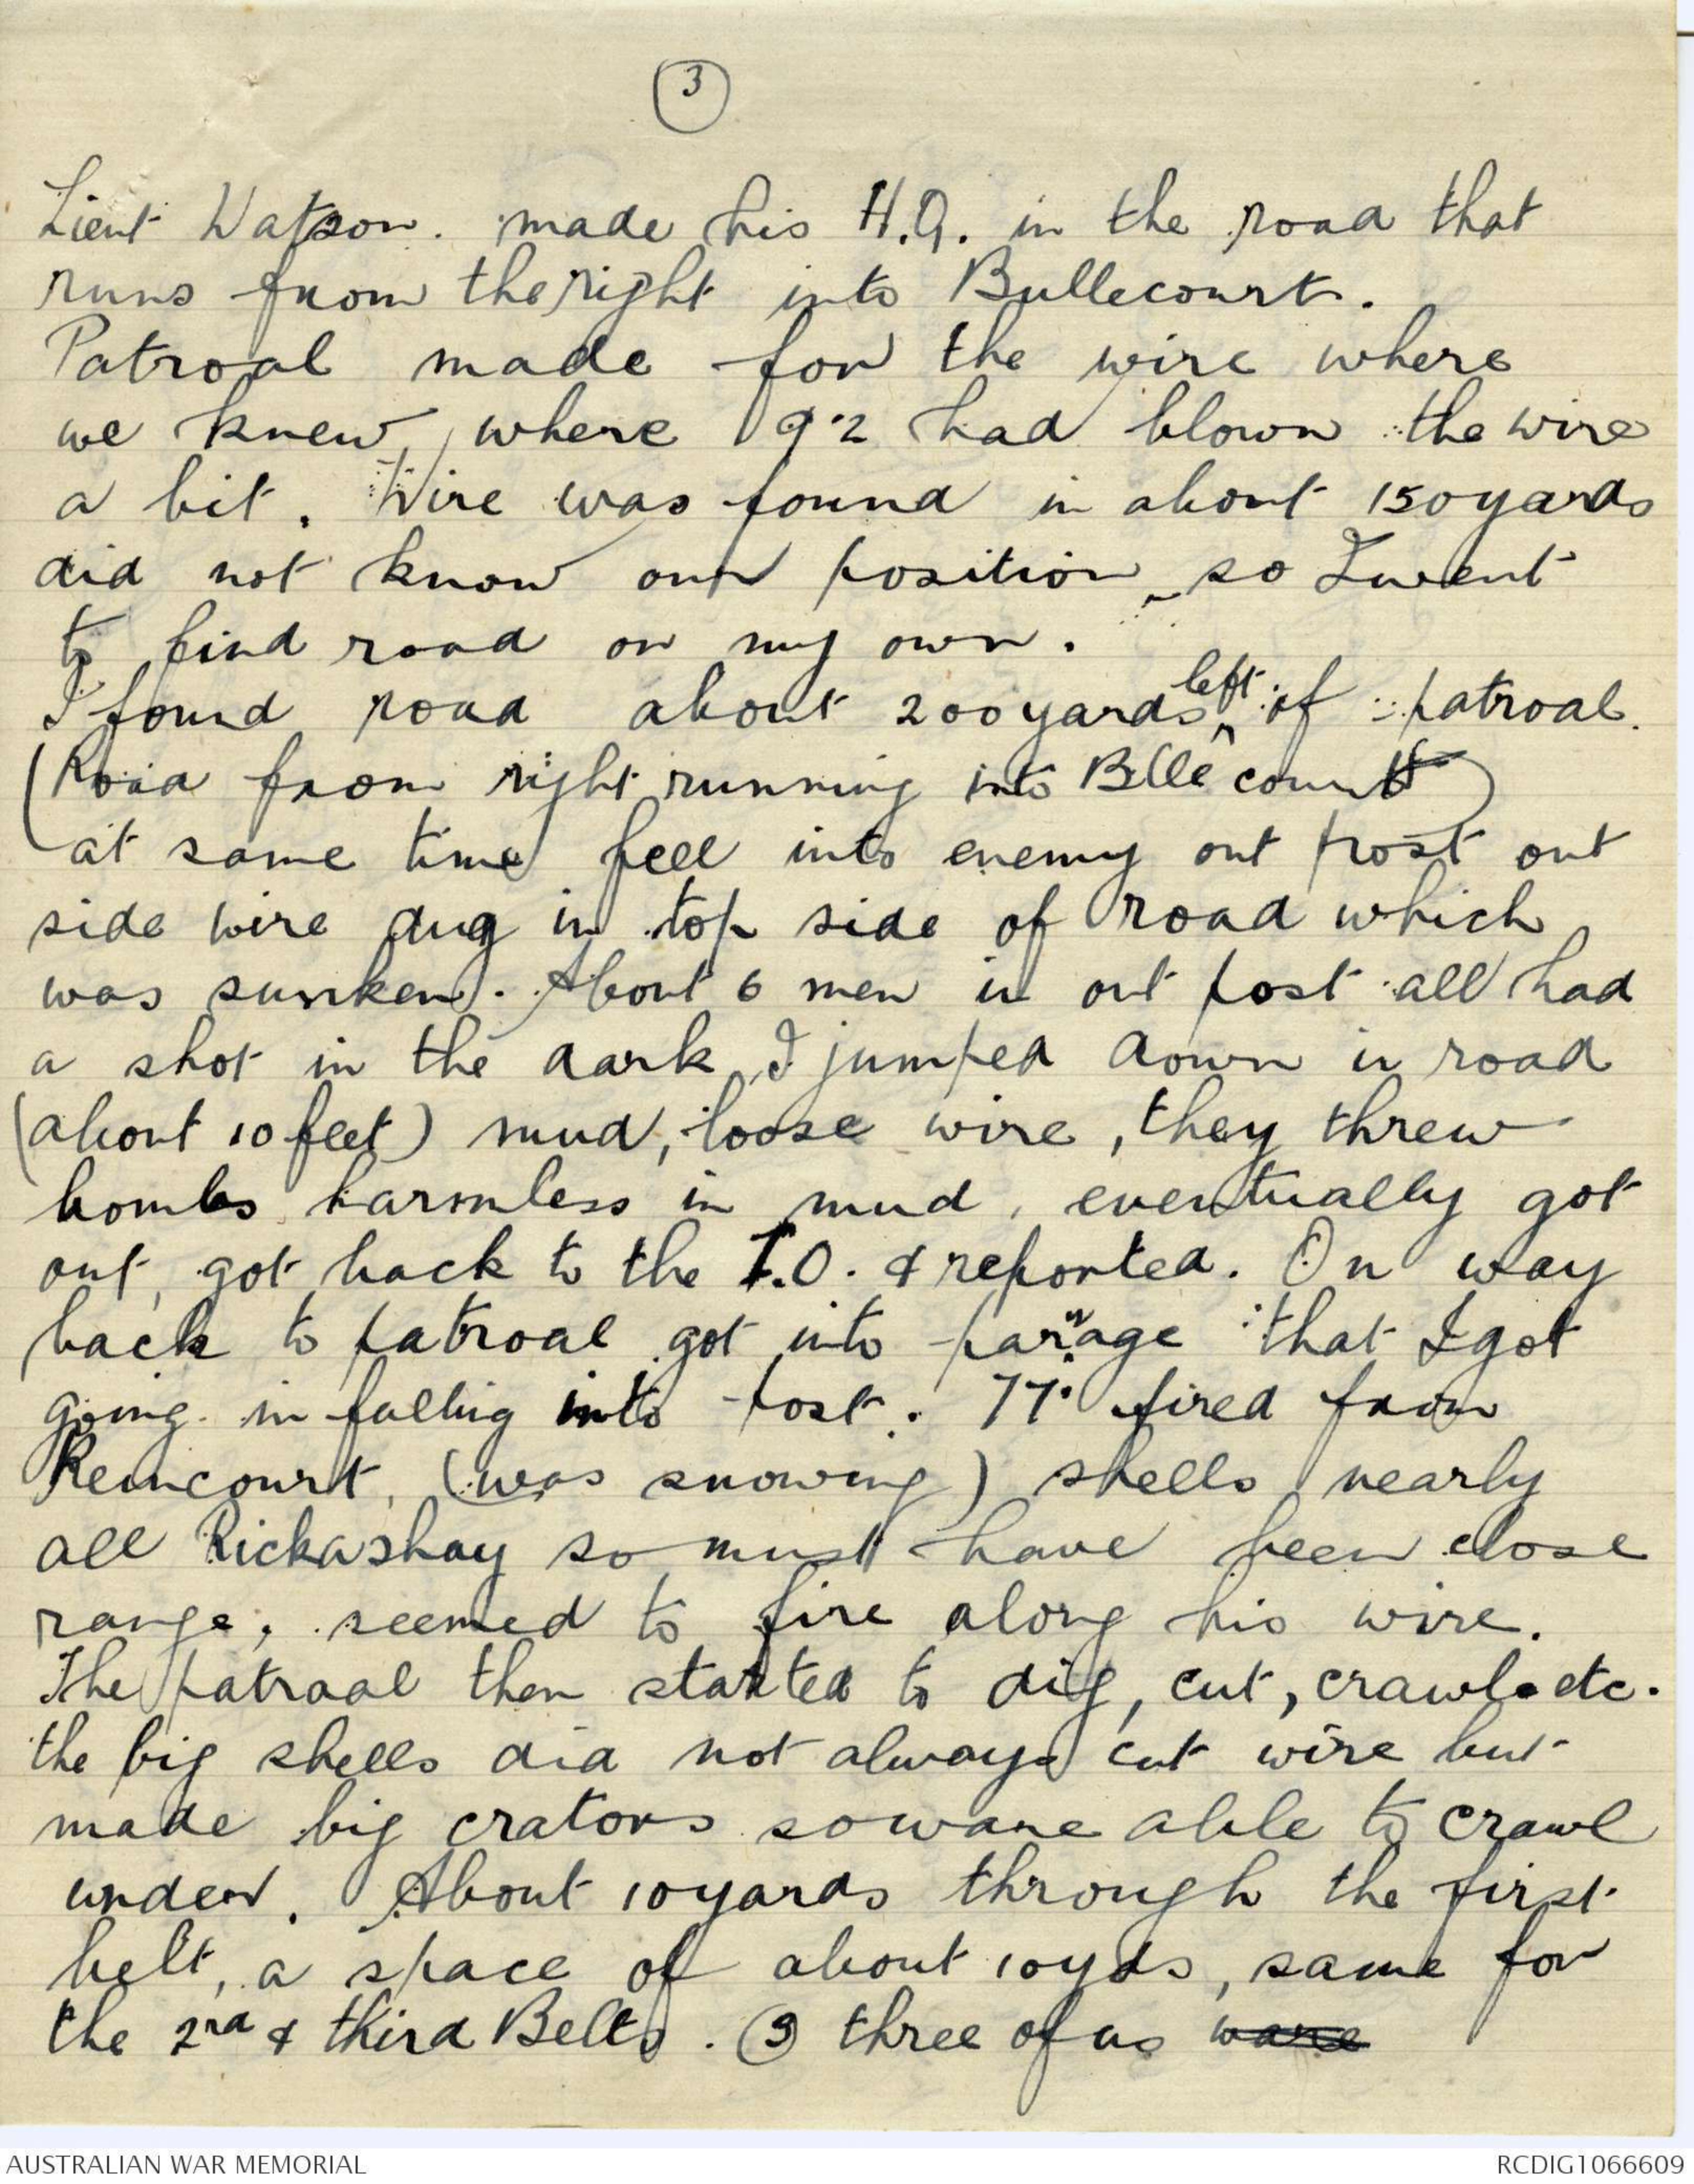 3
Lieut Watson. made his H.Q. in the road that
runs from the right into Bullecourt.
Patroal made for the wire where
we knew, where 9.2 had blown the wire
a bit. Wire was found in about 150 yards
did not know our position, so I went
to find road on my own.
I found road about 200 yards left of patroal.
(Road from right running into Bllecourt)
at same time feel into enemy out post out
side wire dug in top side of road which
was sunken. About 6 men in out post all had
a shot in the dark, I jumped down in road
(about 10 feet) mud, loose wire, they threw
bombs harmless in mud, eventually got
out, got back to the I.O. & reported. On way
back to patroal got into that I got
going in falling into post. 77. fired from
Reincourt, (was snowing) shells nearly
all Rickashay so must have been close
range, seemed to fire along his wire.
The patroal then started to dig, cut, crawl etc.
the big shells did not always cut wire but
made big crators so ware able to crawl
under. About 10 yards through the first
belt, a space of about 10 yds, same for
the 2nd & third Belts. 3 three of us ware
AUSTRALIAN WAR MEMORIAL
RCDIG1066609